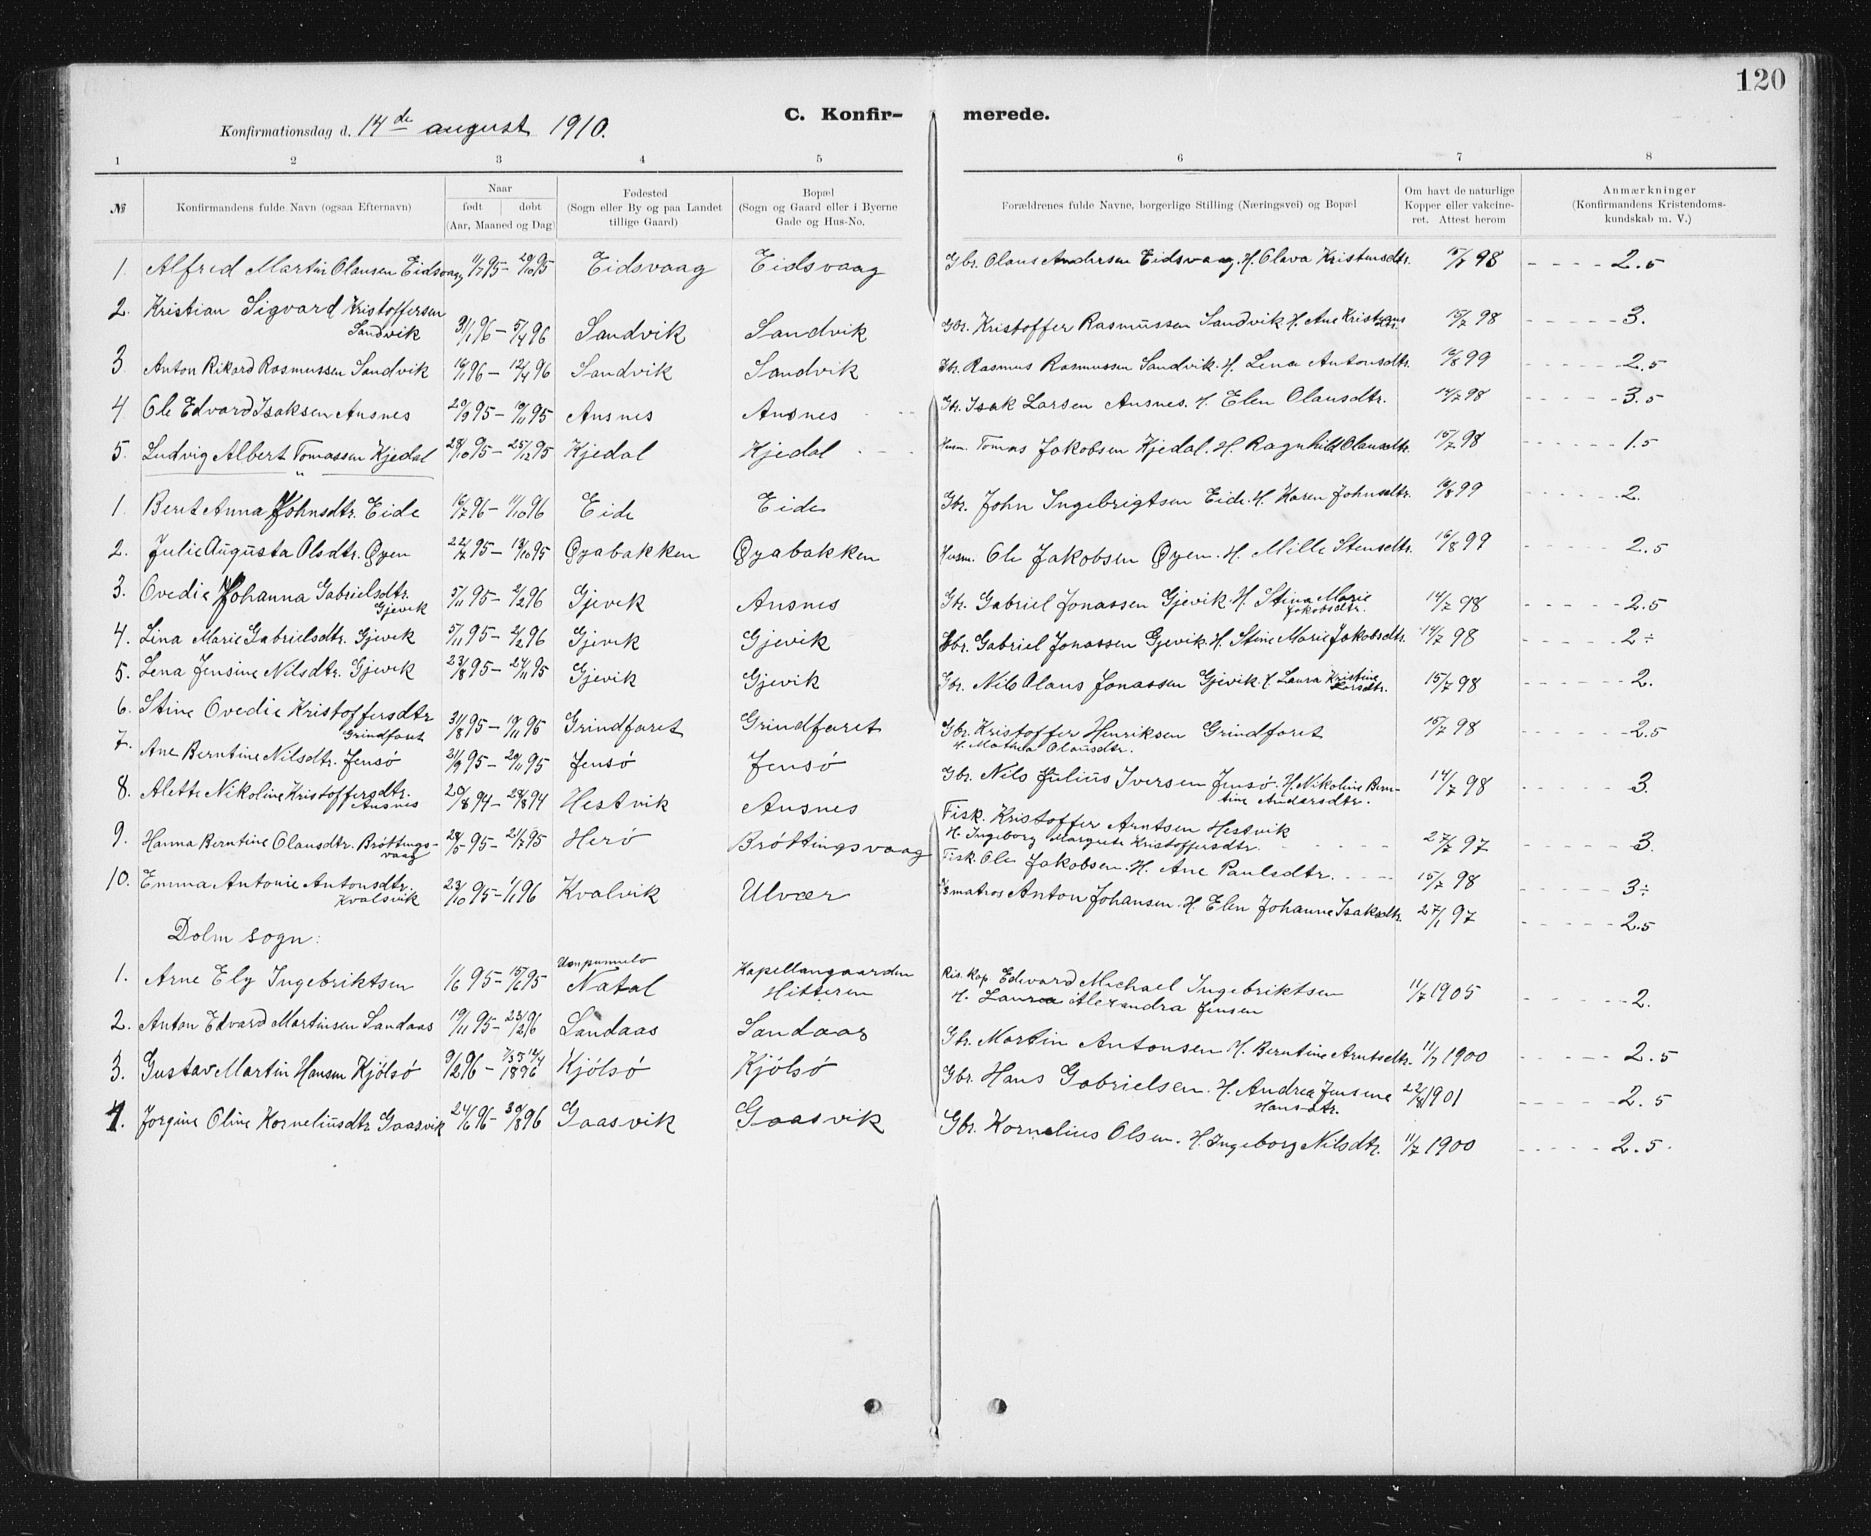 120
C. Konfir- merede.
Konfirmationsdag d. 14de august 1910.
1 2 3 4 5 6 7 8
№ Konfirmandens fulde Navn (ogsaa Efternavn) Naar født døbt (Aar, Maaned og Dag) Fødested (Sogn eller By og paa Landet tillige Gaard) Bopæl (Sogn og Gaard eller i Byerne Gade og Hus-No.) Forældrenes fulde Navne, borgerlige Stilling (Næringsvei) og Bopæl Om havt de naturlige Kopper eller vakcineret. Attest herom Anmærkninger (Konfirmandens Kristendomskundskab m. V.)
1. Alfred Martin Olausen Eidsvaag 11/7 95 - 20/10 95 Eidsvaag Eidsvaag Gbr. Olaus Andersen Eidsvaag. H. Olava Kristensdtr. 15/7 98 2.5
2. Kristian Sigvard Kristoffersen Sandvik 31/1 96 - 5/4 96 Sandvik Sandvik Gbr. Kristoffer Rasmussen Sandvik H. Ane 15/7 98 3.
3. Anton Rikard Rasmussen Sandvik 16/1 96 - 12/4 96 Sandvik Sandvik Gbr. Rasmus Rasmussen Sandvik. H. Lena Antonsdtr. 16/8 99 2.5
4. Ole Edvard Isaksen Ansnes 20/9 95 - 10/11 95 Ansnes Ansnes Gbr. Isak Larsen Ansnes. H. Elen Olausdtr. 14/7 98 3.5
5. Ludvig Albert Tomassen Kjedal 28/10 95 - 25/12 95 Kjedal Kjedal Husm. Tomas Jakobsen Kjedal. H. Ragnhild Olausdtr. 15/7 98 1.5
"
1. Berit Anna Johnsdtr. Eide 16/7 96 - 11/10 96 Eide Eide Gbr. John Ingebrigtsen Eide. H. Karen Johnsdtr. 16/8 99 2.
2. Julie Augusta Olsdtr. Øyen 22/7 95 - 13/10 95 Øyabakken Øyabakken Husm. Ole Jakobsen Øyen. H. Mille Stensdtr. 16/8 99 2.5
3. Ovedie Johanna Gabrielsdtr. Gjevik 5/11 95 - 2/2 96 Gjevik Ansnes Gbr. Gabriel Jonassen Gjevik. H. Stina Marie Jakobsdtr. 14/7 98 2.5
4. Lina Marie Gabrielsdtr. Gjevik 5/11 95 - 2/2 96 Gjevik Gjevik Gbr. Gabriel Jonassen Gjevik. H. Stine Marie Jakobsdtr. 14/7 98 2÷
5. Lena Jensine Nilsdtr. Gjevik 23/8 95 - 24/11 95 Gjevik Gjevik Gbr. Nils Olaus Jonassen Gjevik. H. Laura Kristine Larsdtr. 15/7 98 2.
6. Stine Ovedie Kristoffersdtr Grindfaret 31/8 95 - 10/11 95 Grindfaret Grindfaret Gbr. Kristoffer Henriksen Grindfaret H. Mathea Olausdtr. 15/7 98 2.5
7. Ane Berntine Nilsdtr. Jensø 21/9 95 - 24/11 95 Jensø Jensø Gbr. Nils Julius Iversen Jensø. H. Nikoline Berntine Andersdtr. 14/7 98 3.
8. Alette Nikoline Kristoffersdtr. Ansnes 20/8 94 - 28/8 94 Hestvik Ansnes Fisk. Kristoffer Arntsen Hestvik H. Ingeborg Margrete Kristoffersdtr. 27/7 97 3.
9. Hanna Berntine Olausdtr. Brøttingsvaag 28/5 95 - 21/7 95 Herø Brøttingsvaag Fisk. Ole Jakobsen. H. Ane Paulsdtr. 15/7 98 3÷
10. Emma Antonie Antonsdtr. Kvalsvik 23/10 95 - 1/1 96 Kvalvik Ulvær matros Anton Johansen. H. Elen Johanne Isaksdtr. 27/1 97 2.5
Dolm sogn:
1. Arne Ely Ingebriktsen 1/6 95 - 15/6 95 Natal Kapellangaarden Hitteren Res. Kap. Edvard Michael Ingebriktsen H. Laura Alexandra Jensen 11/7 1905 2.
2. Anton Edvard Martinsen Sandaas 19/11 95 - 23/2 96 Sandaas Sandaas Gbr. Martin Antonsen H. Berntine Arntsdtr. 11/7 1900 2.5
3. Gustav Martin Hansen Kjølsø 9/2 96 - 1896 Kjølsø Kjølsø Gbr. Hans Gabrielsen. H. Andrea Jensine Hansdtr. 22/8 1901 2.5
4. Jorgine Oline Korneliusdtr Gaasvik 24/6 96 - 30/8 96 Gaasvik Gaasvik Gbr. Kornelius Olsen. H. Ingeborg Nilsdtr. 11/7 1900 2.5